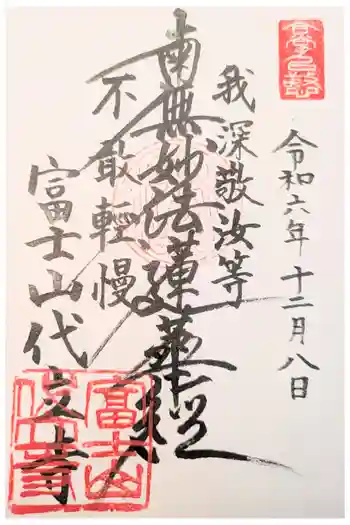 令和六年十二月八日
我深敬汝等
南無妙法蓮華經
不敢輕慢
富士山代寺
富士山